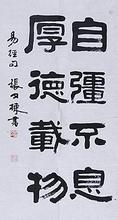 自彊不息
厚德載物
易經句 張 書